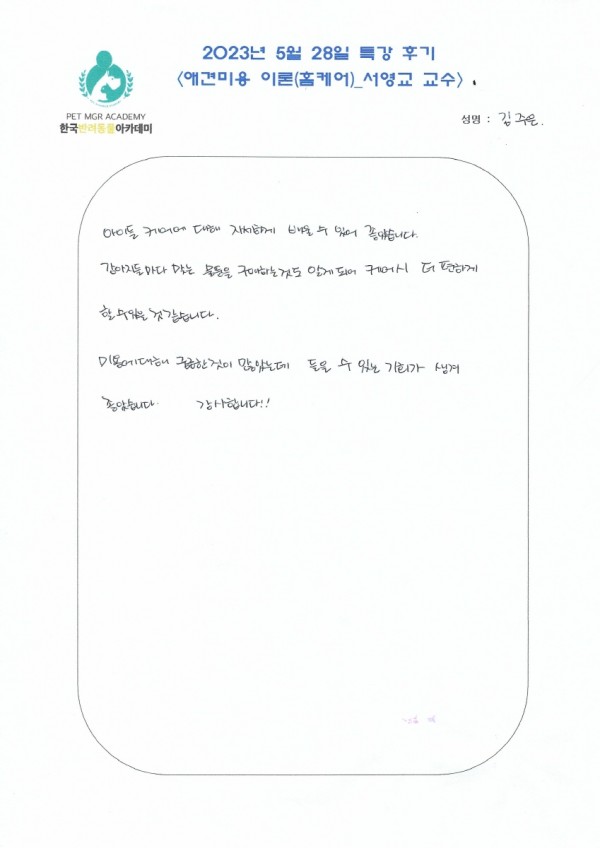 2023년 5월 28일 특강 후기
<애견미용 이론(홈케어)_서영교 교수>
PET MGR ACADEMY
한국반려동물아카데미
성명 : 김주은.
아이들 케어에 대해 자세하게 배울 수 있어 좋았습니다.
강아지들마다 맞는 물품을 구매하는것도 알게되어 케어시 더 편하게
할 수 있을 것 같습니다.
미용에 대해 궁금한것이 많았는데 들을 수 있는 기회가 생겨
좋았습니다. 감사합니다!!